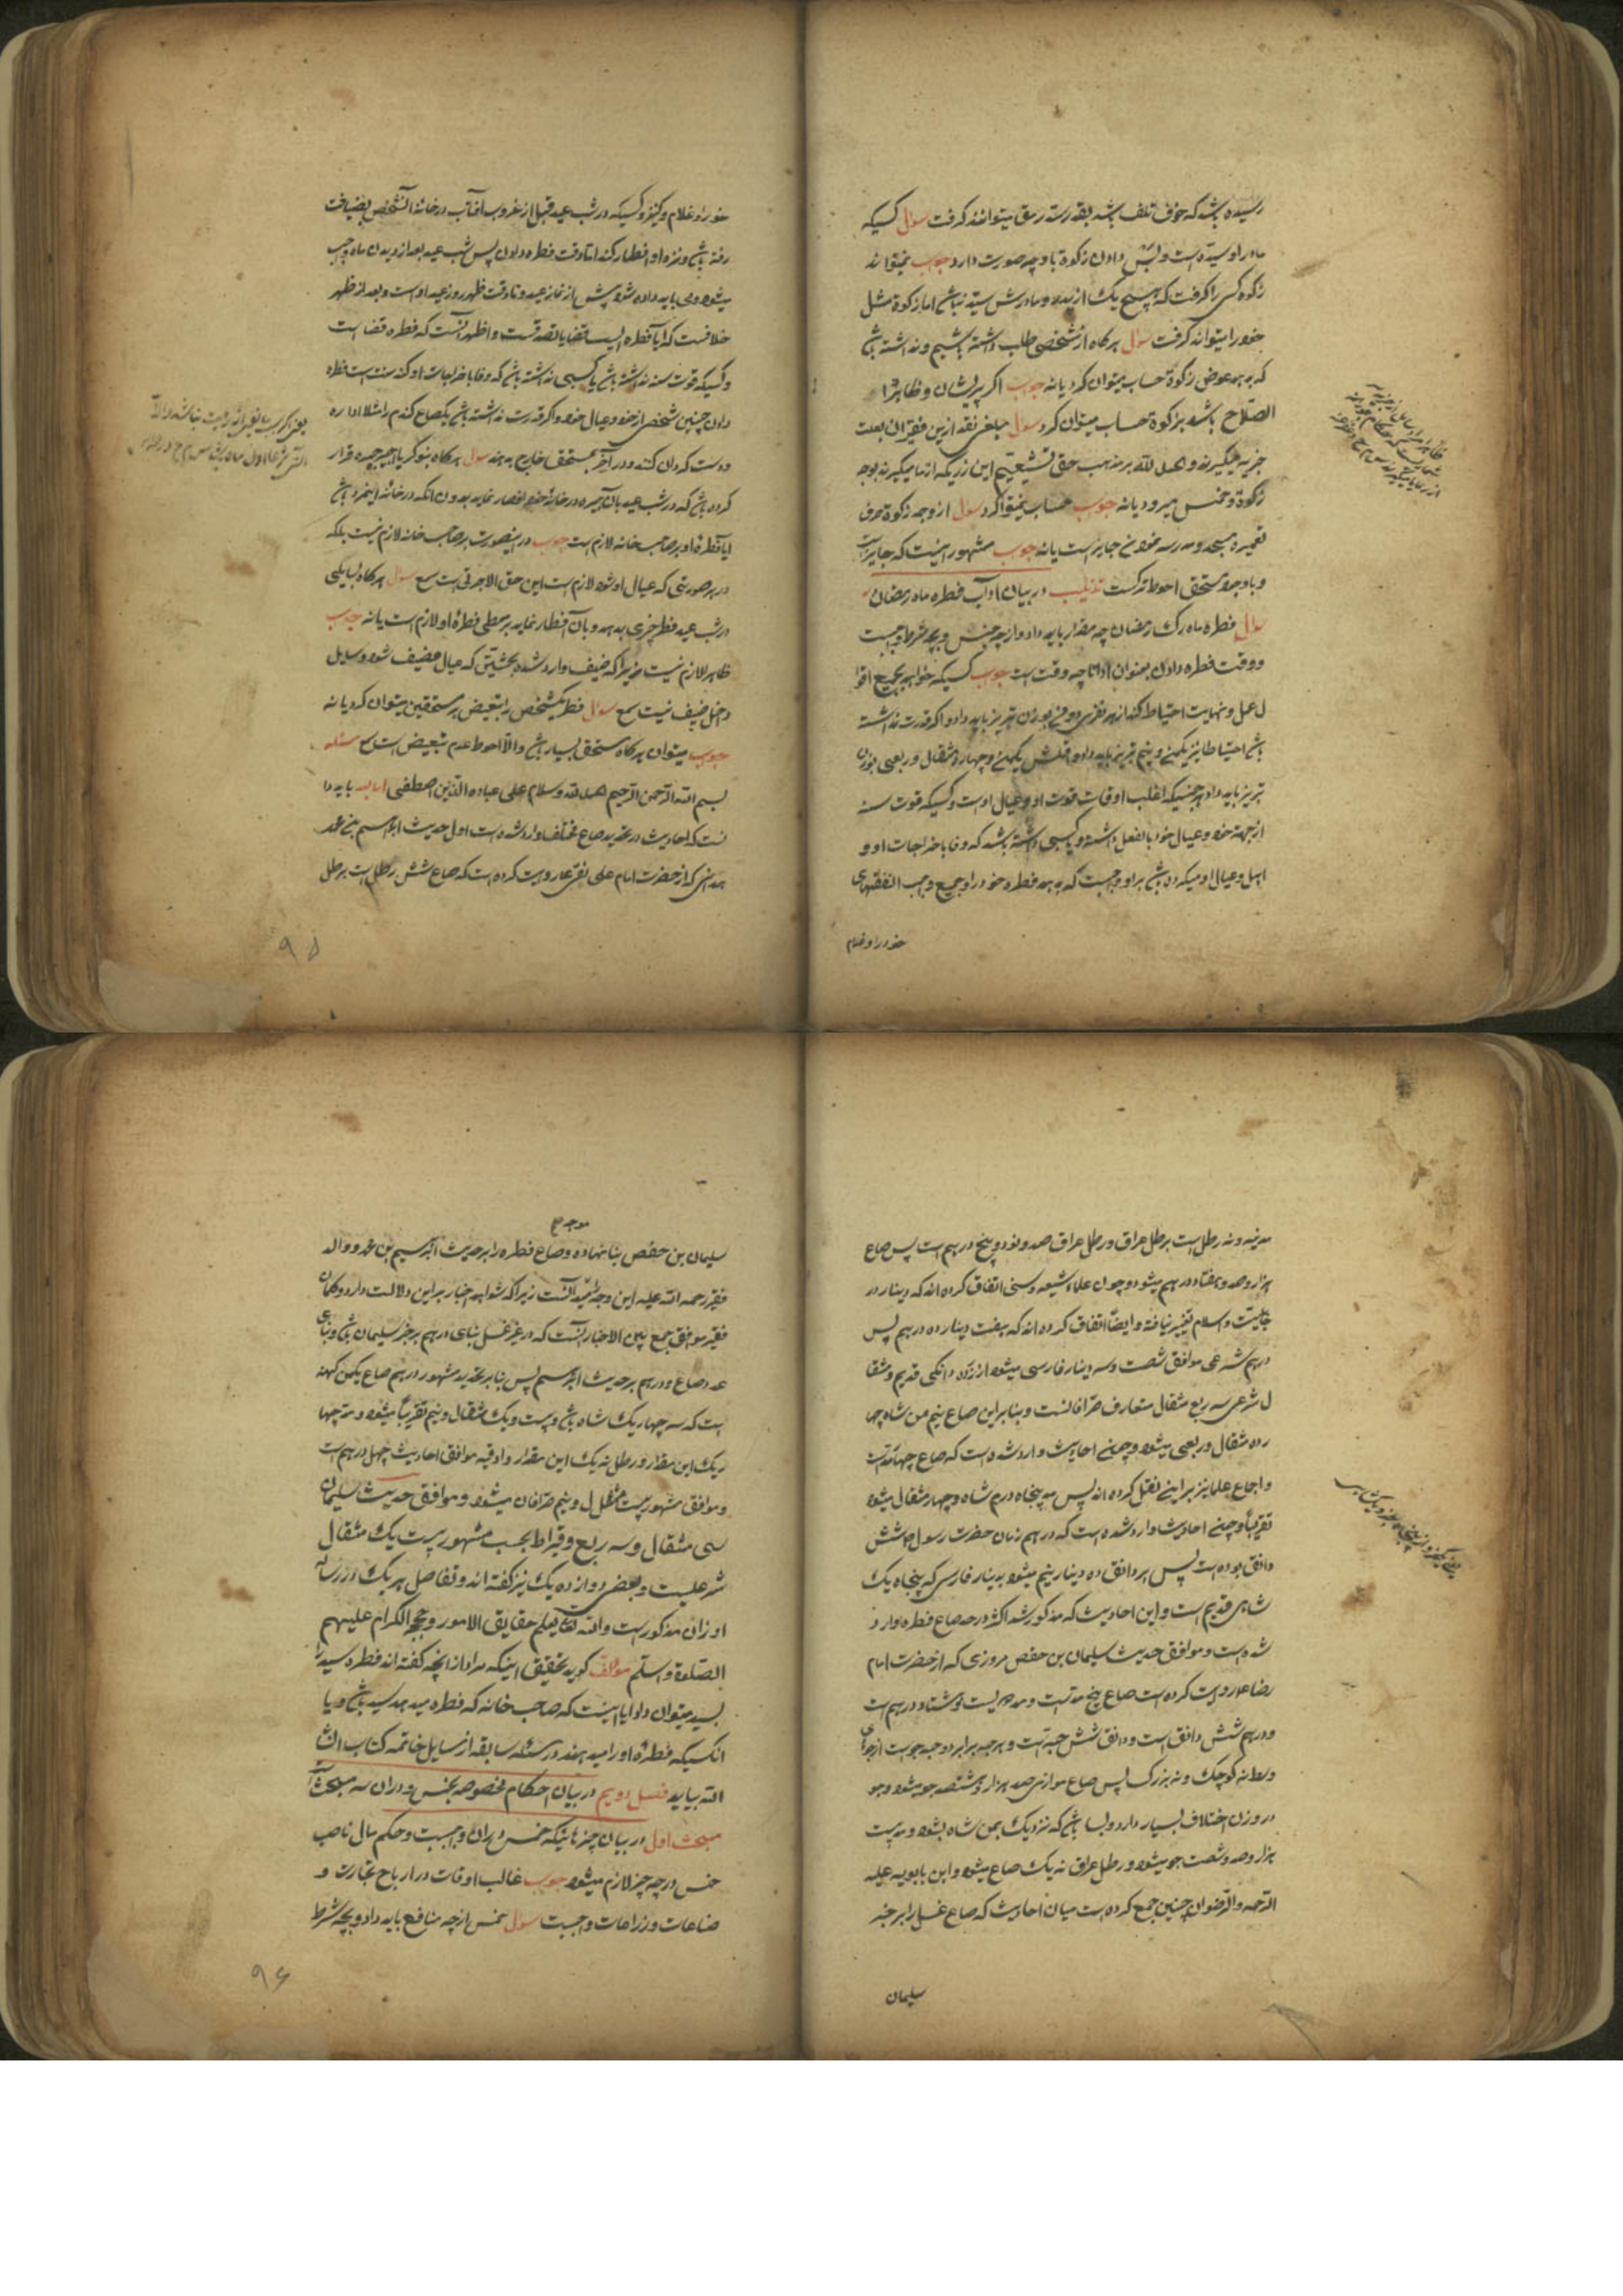 رسیده باشد که خوف تلف باشد بقدر سد رمق میتوانند گرفت سؤال کسیکه
مادر او سیده است و پدرش دادن زکوة باو چه صورت دارد جواب نمیتواند
زکوة کسی را گرفت که هیچ یک از پدر و مادرش سید نباشد اما زکوة مثل
خود را میتواند گرفت سؤال هر گاه از شخصی طلب داشته باشیم و نداشته باشد
که بدهد عوض زکوة حساب میتوان کرد یا نه جواب اگر پریشان و ظاهرا
الصلاح باشد بزکوة حساب میتوان کرد سؤال مبلغی نقد ازین فقیران بعلت
جزیه میگیرند و الحمد لله بر مذهب حق تشیعیم این زریکه از ما میگیرند بوجه
زکوة و خمس میرود یا نه جواب حساب نمیتوان کرد سؤال از وجه زکوة صرف
تعمیر مسجد و مدرسه نمودن جایز است یا نه جواب مشهور اینست که جایز است
و با وجود مستحق احوط ترکست تذنیب در بیان آداب فطره ماه رمضان
سؤال فطره ماه مبارک رمضان چه مقدار باید داد و از چه جنس و بچه شرط واجبست
و وقت فطره دادن بعنوان ادا تا چه وقت است جواب کسیکه خواهد بجمیع اقوا
ل عمل و نهایت احتیاط کند از هر نفری دو من بوزن تبریز باید داد و اگر قدرت نداشته
باشد احتیاطا نیز یکمن و نیم تبریز باید داد و اقلش یکمن و چهارده مثقال و ربعی بوزن
تبریز باید داد هر جنسیکه اغلب اوقات قوت او و عیال اوست و کسیکه قوت سنه
از جهة خود و عیال خود بالفعل داشته و یا کسبی داشته باشد که وفا باخراجات او و
اهل و عیال او میکرده باشد بر او واجبست که بدهد فطره خود را و جمیع واجب النفقهای
خود را و غلام
خود را و غلام و کنیز و کسیکه در شب عید قبل از غروب آفتاب در خانه آنشخص بضیافت
رفته باشد و نزد او افطار کند اما وقت فطره دادن پس شب عید بعد از دیدن ماه واجب
میشود ولی باید داده شود پیش از نماز عید و تا وقت ظهر روز عید ادا است و بعد از ظهر
خلافست که آیا فطره ادا یست قضا یا تصدقست و اظهر آنست که فطره قضا است
و کسیکه قوت سنه نداشته باشد یا کسبی نداشته باشد که وفا باخراجات او کند سنت است فطره
دادن چنین شخص از خود و عیال خود و اگر قدرت نداشته باشد یکصاع گندم را مثلا اداره
و دست گردان کنند و در آخر بمستحق خارج بدهند سؤال هر گاه بنوکر یا اجیر چیزه قرار
کرده باشد که در شب عید بان اجیره در خانه خود افطار نماید بدون آنکه در خانه این مرد باشد
آیا فطره او بر صاحب خانه لازم است جواب در اینصورت بر صاحب خانه لازم نیست بلکه
در هر صورتی که عیال او شود لازم است این حق الاجرتی است سؤال هر گاه بسایلی
در شب عید فطر چیزی بدهد و بآن افطار نماید بر معطی فطره او لازم است یا نه جواب
ظاهرا لازم نیست زیرا که ضیف وارد شده بحیثیتی که عیال مضیف شود و سایل
داخل ضیف نیست سؤال فطره یکشخص را بتبعیض بر مستحقین میتوان کرد یا نه
جواب میتوان هر گاه مستحق بسیار باشد و الا احوط عدم تبعیض است مسئله
بسم الله الرحمن الرحیم الحمد لله و سلام علی عباده الذین اصطفی اما بعد باید دا
نست که احادیث در تحدید صاع مختلف وارد شده است اول حدیث ابراهیم بن محمد
همدانی که از حضرت امام علی نقی ع روایت کرده است که صاع شش رطل است برطل
۹۵
مدینه و نه رطل است برطل عراق و رطل عراق صد و نود و پنج درهم است پس صاع
هزار و صد و هفتاد درهم میشود و چون علماء شیعه و سنی اتفاق کرده اند که دینار در
جاهلیت و اسلام تغییر نیافته و ایضا اتفاق کرده اند که هفت دینار ده درهم پس
درهم شرعی موافق شصت و سه دینار فارسی میشود از زر ده دانکی قدیم و مثقا
ل شرعی سه ربع مثقال متعارف صرافانست و بنا بر این صاع نیم من شاه چها
رده مثقال و ربعی میشود و چون احادیث وارد شده است که صاع چهار مد است
و اجماع علما نیز بر این نقل کرده اند پس مد پنجاه درم شاه و چهار مثقال میشود
تقریبا و چون احادیث وارد شده است که درهم زمان حضرت رسول ص شش
دانق بوده است پس هر دانق ده دینار نیم میشود بدینار فارسی که پنجاه یک
شاهی قدیم است و این احادیث که مذکور شد اکثر در حد صاع فطره وارد
شده است و موافق حدیث سلیمان بن حفص مروزی که از حضرت امام
رضا ع روایت کرده است صاع پنج مد است و مد دویست و هشتاد درهم است
و درهم شش دانق است و دانق شش حبه است و هر حبه برابر دو حبه جو است از جوهای
وسط نه کوچک و نه بزرگ پس صاع موازی صد هزار و هشتصد جو میشود و جو
در وزن اختلاف بسیار دارد و بسا باشد که نزدیک بمن شاه بشود و مد بیست
هزار و صد و شصت جو میشود و رطل عراق نه یک صاع میشود و ابن بابویه علیه
الرحمه و الرضوان چنین جمع کرده است میان احادیث که صاع غسل را بر خبر
سلیمان
سلیمان بن حفص بنا نهاده و صاع فطره را بر حدیث ابراهیم بن محمد و والد
فقیر رحمه الله علیه این وجه را پسندیده است زیرا که شواهد اخبار بر این دلالت دارد و گمان
فقیر موافق جمع بین الاخبار آنست که در غیر غسل بنای درهم بر خبر سلیمان باشد و بنای
مد و صاع و درهم بر حدیث ابراهیم پس بنا بر تحدید مشهور درهم صاع یکمن کهنه
است که سه چهار یک شاه باشد و بیست و یک مثقال و نیم تقریبا میشود و مد چها
ریک این مقدار و رطل نه یک این مقدار و اوقیه موافق احادیث چهل درهم است
و موافق مشهور بیست مثقال و نیم صرافان میشود و موافق حدیث سلیمان
سی مثقال و سه ربع و قیراط بحسب مشهور بیست یک مثقال
شرعیست و بعضی دوازده یک نیز گفته اند و تفاصیل هر یک در رساله
اوزان مذکور است و الله تعالی یعلم حقایق الامور و حججه الکرام علیهم
الصلوة و السلم مؤلف گوید تحقیق اینکه مراد از آنچه گفته اند فطره سید را
بسید میتوان داد آیا اینست که صاحب خانه که فطره میدهد سید باشد و یا
آنکسیکه فطره او را میدهند در مسئله سابقه از مسایل خاتمه کتاب انشا
الله بیاید فصل دویم در بیان احکام مخصوصه بخمس و در آن سه مبحث است
مبحث اول در بیان چیزهائیکه خمس در آن واجبست و حکم مال ناصب
خمس در چه چیز لازم میشود جواب غالب اوقات در ارباح تجارت و
صناعات و زراعات واجبست سؤال خمس از چه منافع باید داد و بچه شرط
۹۶